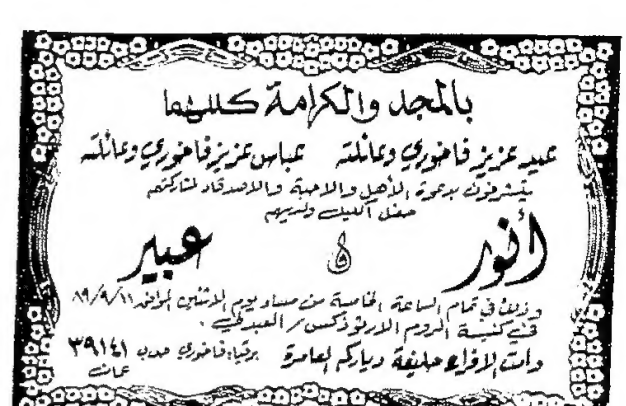 بالمجد والكرامة كللهما
عيد عزيز فاخوري وعائلته عباس عزيز فاخوري وعائلته
يتشرفون بدعوة الأهل والاحبة والاصدقاء لمشاركتهم
حفل اكليل ولديهم
أنور و عبير
وذلك في تمام الساعة الخامسة من مساء يوم الاثنين الموافق ٨٩/٩/١١
في كنيسة الروم الارثوذكس / العبدلي .
دامت الافراح حليفة دياركم العامرة برقياً، فاخوري ص.ب ٣٩١٤١
عمان